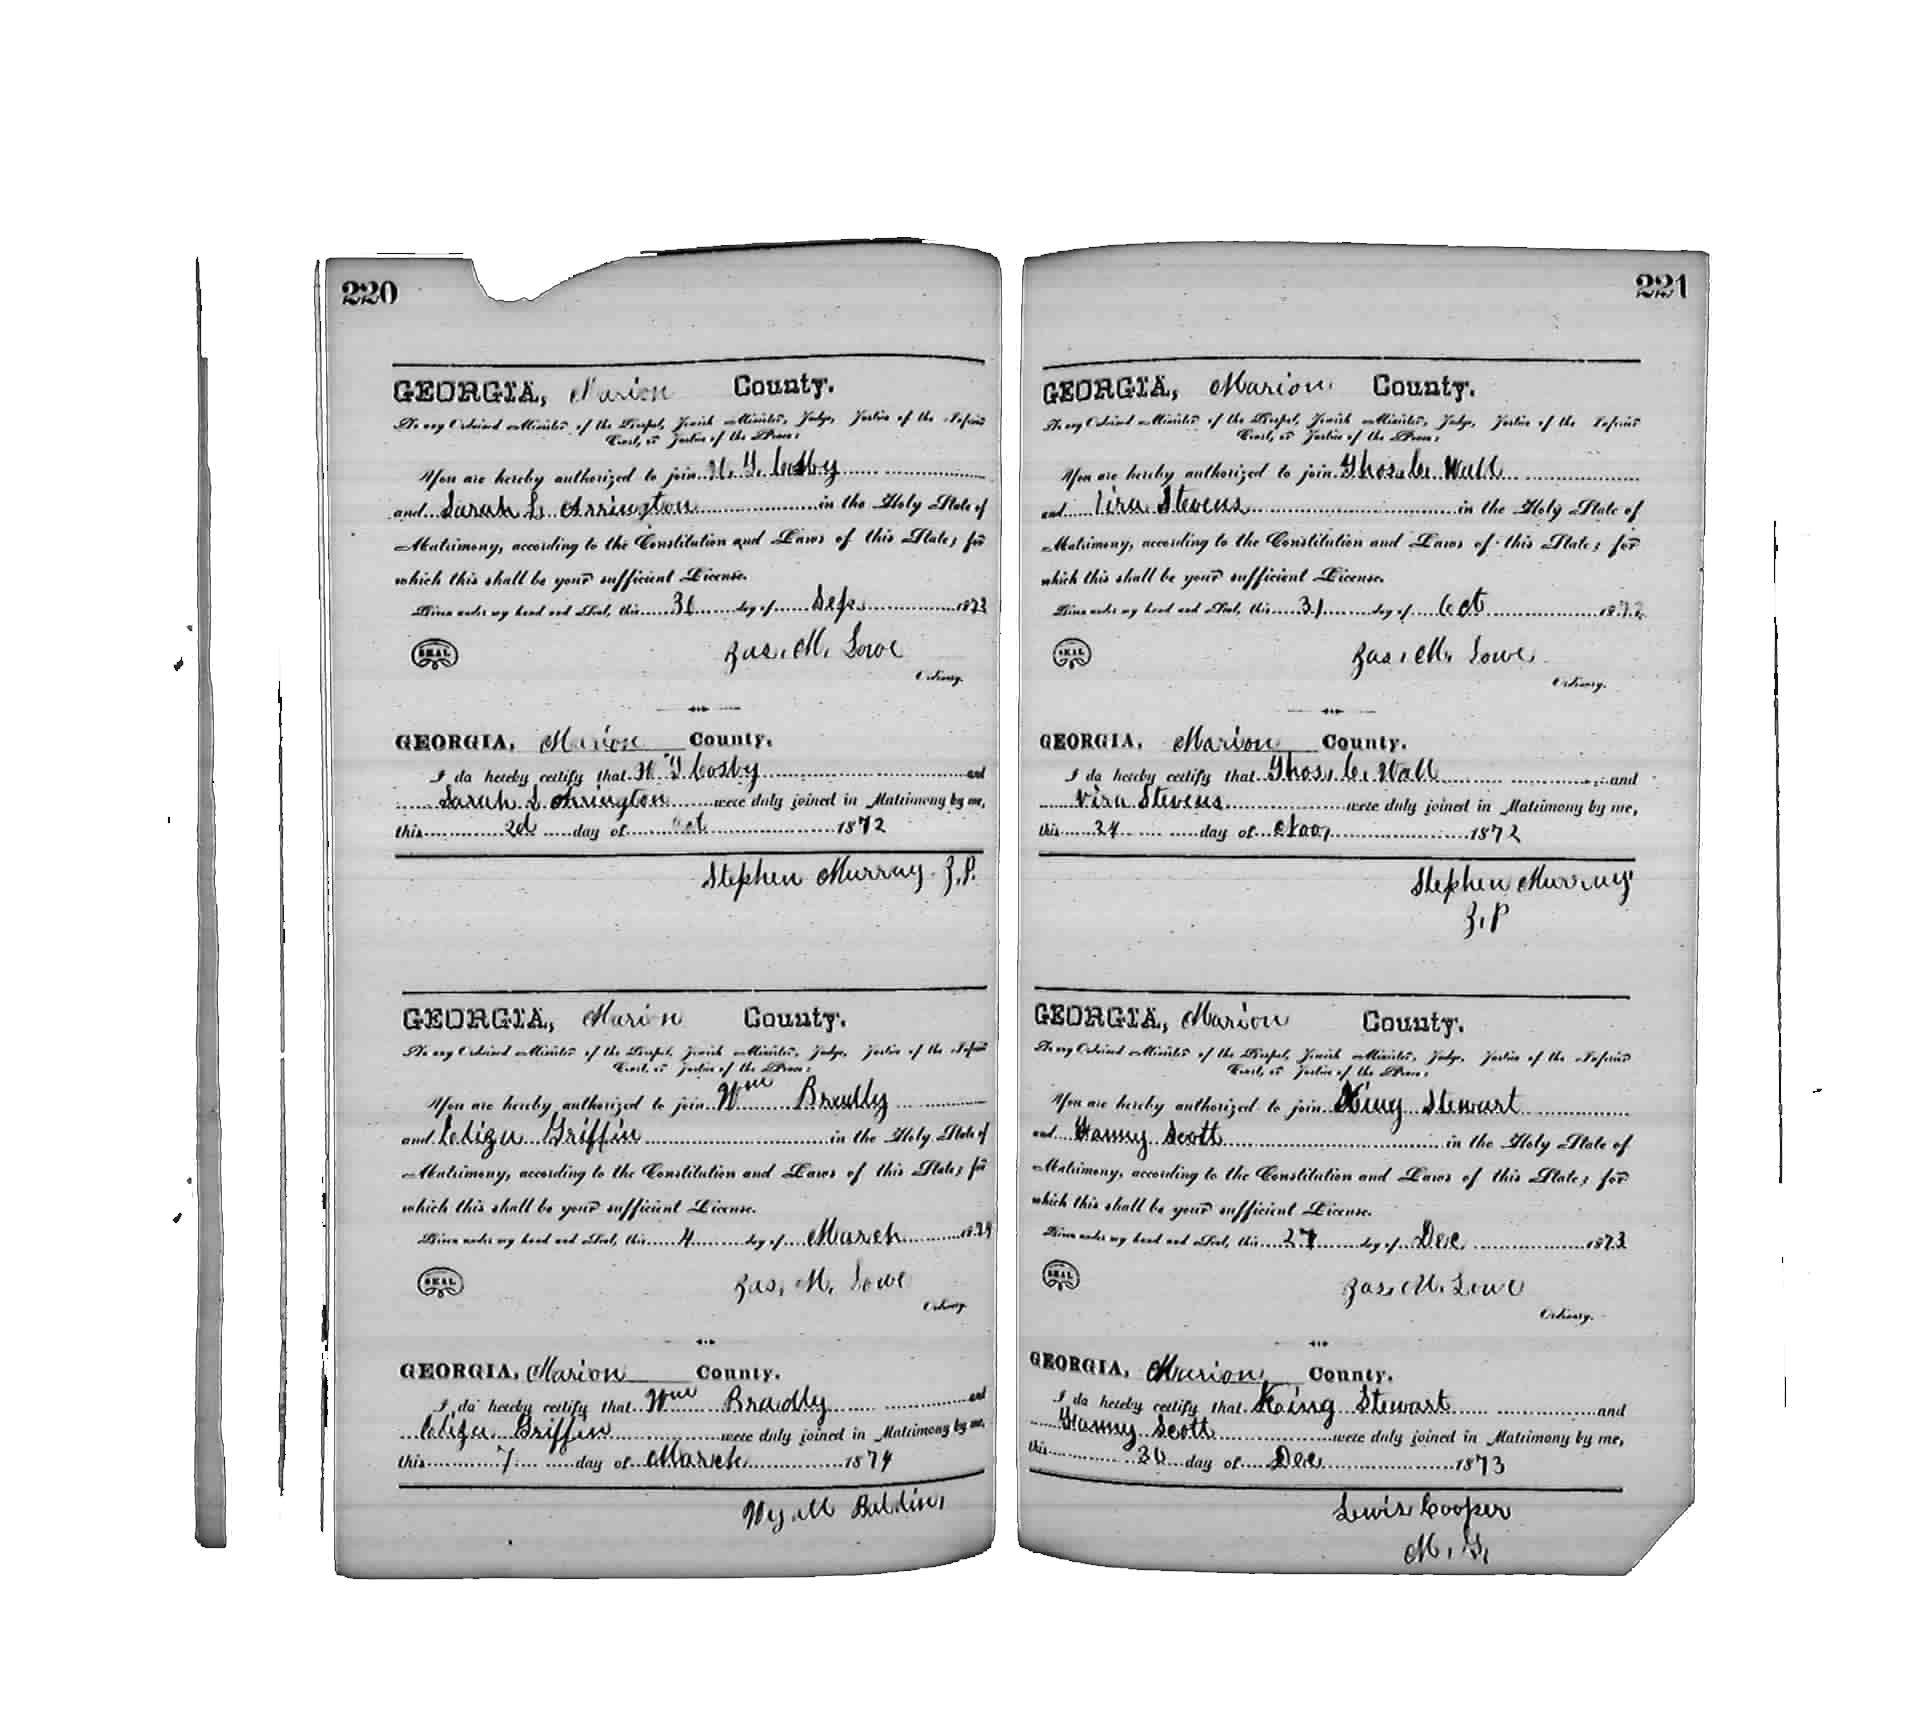 220
GEORGIA, Marion County.
To any Ordained Minister of the Gospel, Jewish Minister, Judge, Justice of the Inferior
Court, or Justice of the Peace:
You are hereby authorized to join Cosby
and Sarah L. Arrington in the Holy State of
Matrimony, according to the Constitution and Laws of this State; for
which this shall be your sufficient License.
Given under my hand and Seal, this 30 day of Sep. 1872
SEAL
Jas. M. Lowe
Ordinary.
GEORGIA, Marion County.
I do hereby certify that Cosby and
Sarah L Arrington were duly joined in Matrimony by me,
this 2d day of Oct 1872
Stephen Murray J.P.
GEORGIA, Marion County.
To any Ordained Minister of the Gospel, Jewish Minister, Judge, Justice of the Inferior
Court, or Justice of the Peace:
You are hereby authorized to join Wm Bradly
and Eliza Griffin in the Holy State of
Matrimony, according to the Constitution and Laws of this State; for
which this shall be your sufficient License.
Given under my hand and Seal, this 4 day of March 1874
SEAL
Jas. M. Lowe
Ordinary.
GEORGIA, Marion County.
I do hereby certify that Wm Bradly and
Eliza Griffin were duly joined in Matrimony by me,
this 7 day of March 1874
221
GEORGIA, Marion County.
To any Ordained Minister of the Gospel, Jewish Minister, Judge, Justice of the Inferior
Court, or Justice of the Peace:
You are hereby authorized to join Thos. C. Wall
and Vira Stevens in the Holy State of
Matrimony, according to the Constitution and Laws of this State; for
which this shall be your sufficient License.
Given under my hand and Seal, this 31 day of Oct 1872
SEAL
Jas. M. Lowe
Ordinary.
GEORGIA, Marion County.
I do hereby certify that Thos. C. Wall and
Vira Stevens were duly joined in Matrimony by me,
this 24 day of Nov, 1872
Stephen Murray
J.P
GEORGIA, Marion County.
To any Ordained Minister of the Gospel, Jewish Minister, Judge, Justice of the Inferior
Court, or Justice of the Peace:
You are hereby authorized to join King Stewart
and Fanny Scott in the Holy State of
Matrimony, according to the Constitution and Laws of this State; for
which this shall be your sufficient License.
Given under my hand and Seal, this 27 day of Dec 1873
SEAL
Jas. M. Lowe
Ordinary.
GEORGIA, Marion County.
I do hereby certify that King Stewart and
Fanny Scott were duly joined in Matrimony by me,
this 30 day of Dec 1873
Lewis Cooper
M. G.